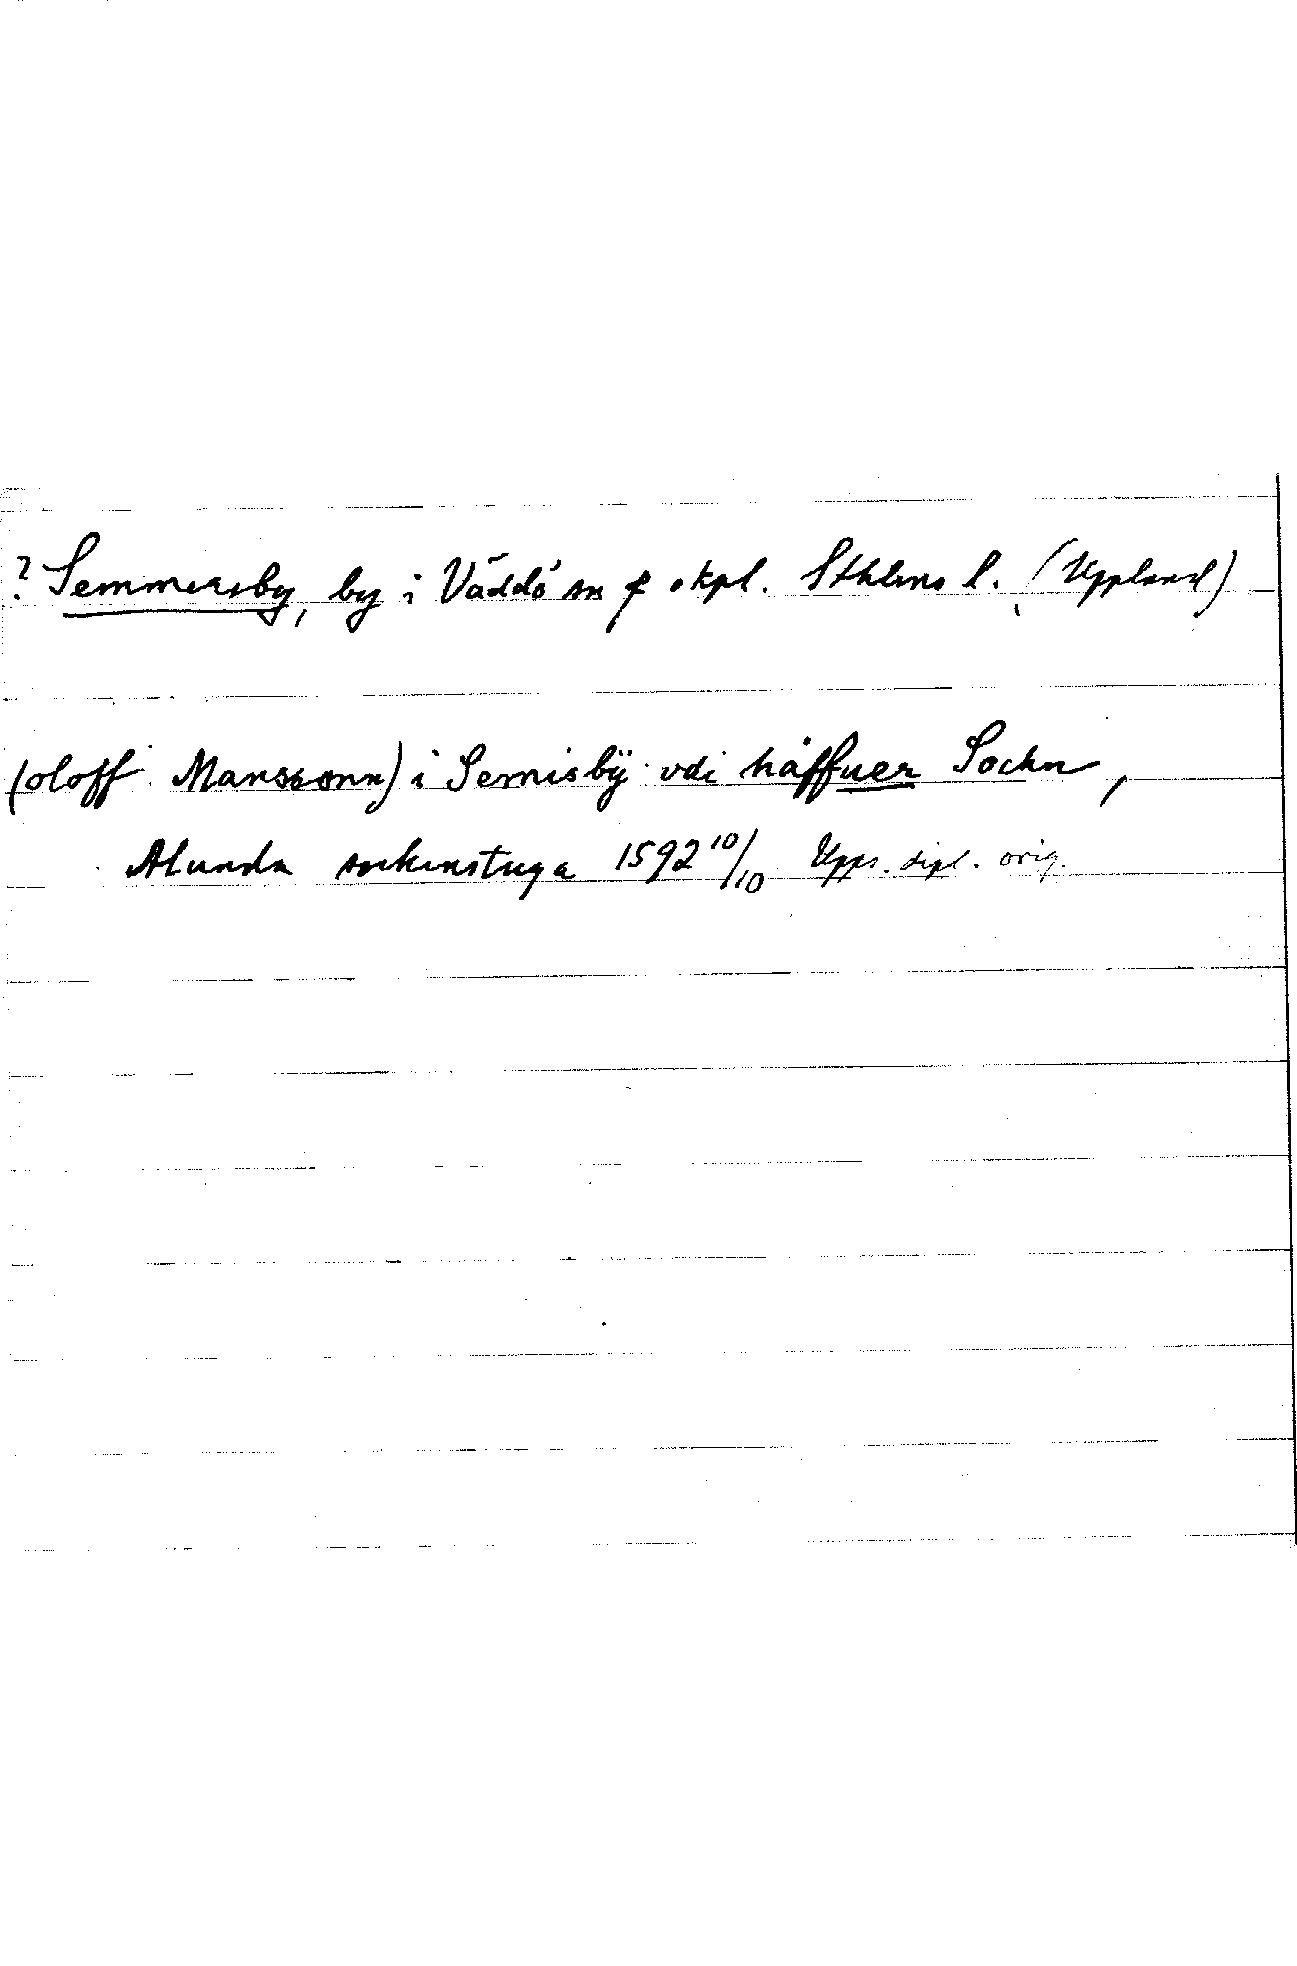 ? Semmersby, by i Väddö sn o skpl. Sthlms l. (Uppland)
(oloff Mansson) i Semisbÿ vdi håffuer Sochn,
Alunda sockenstuga 1592 10/10 Upps. dipl. orig.